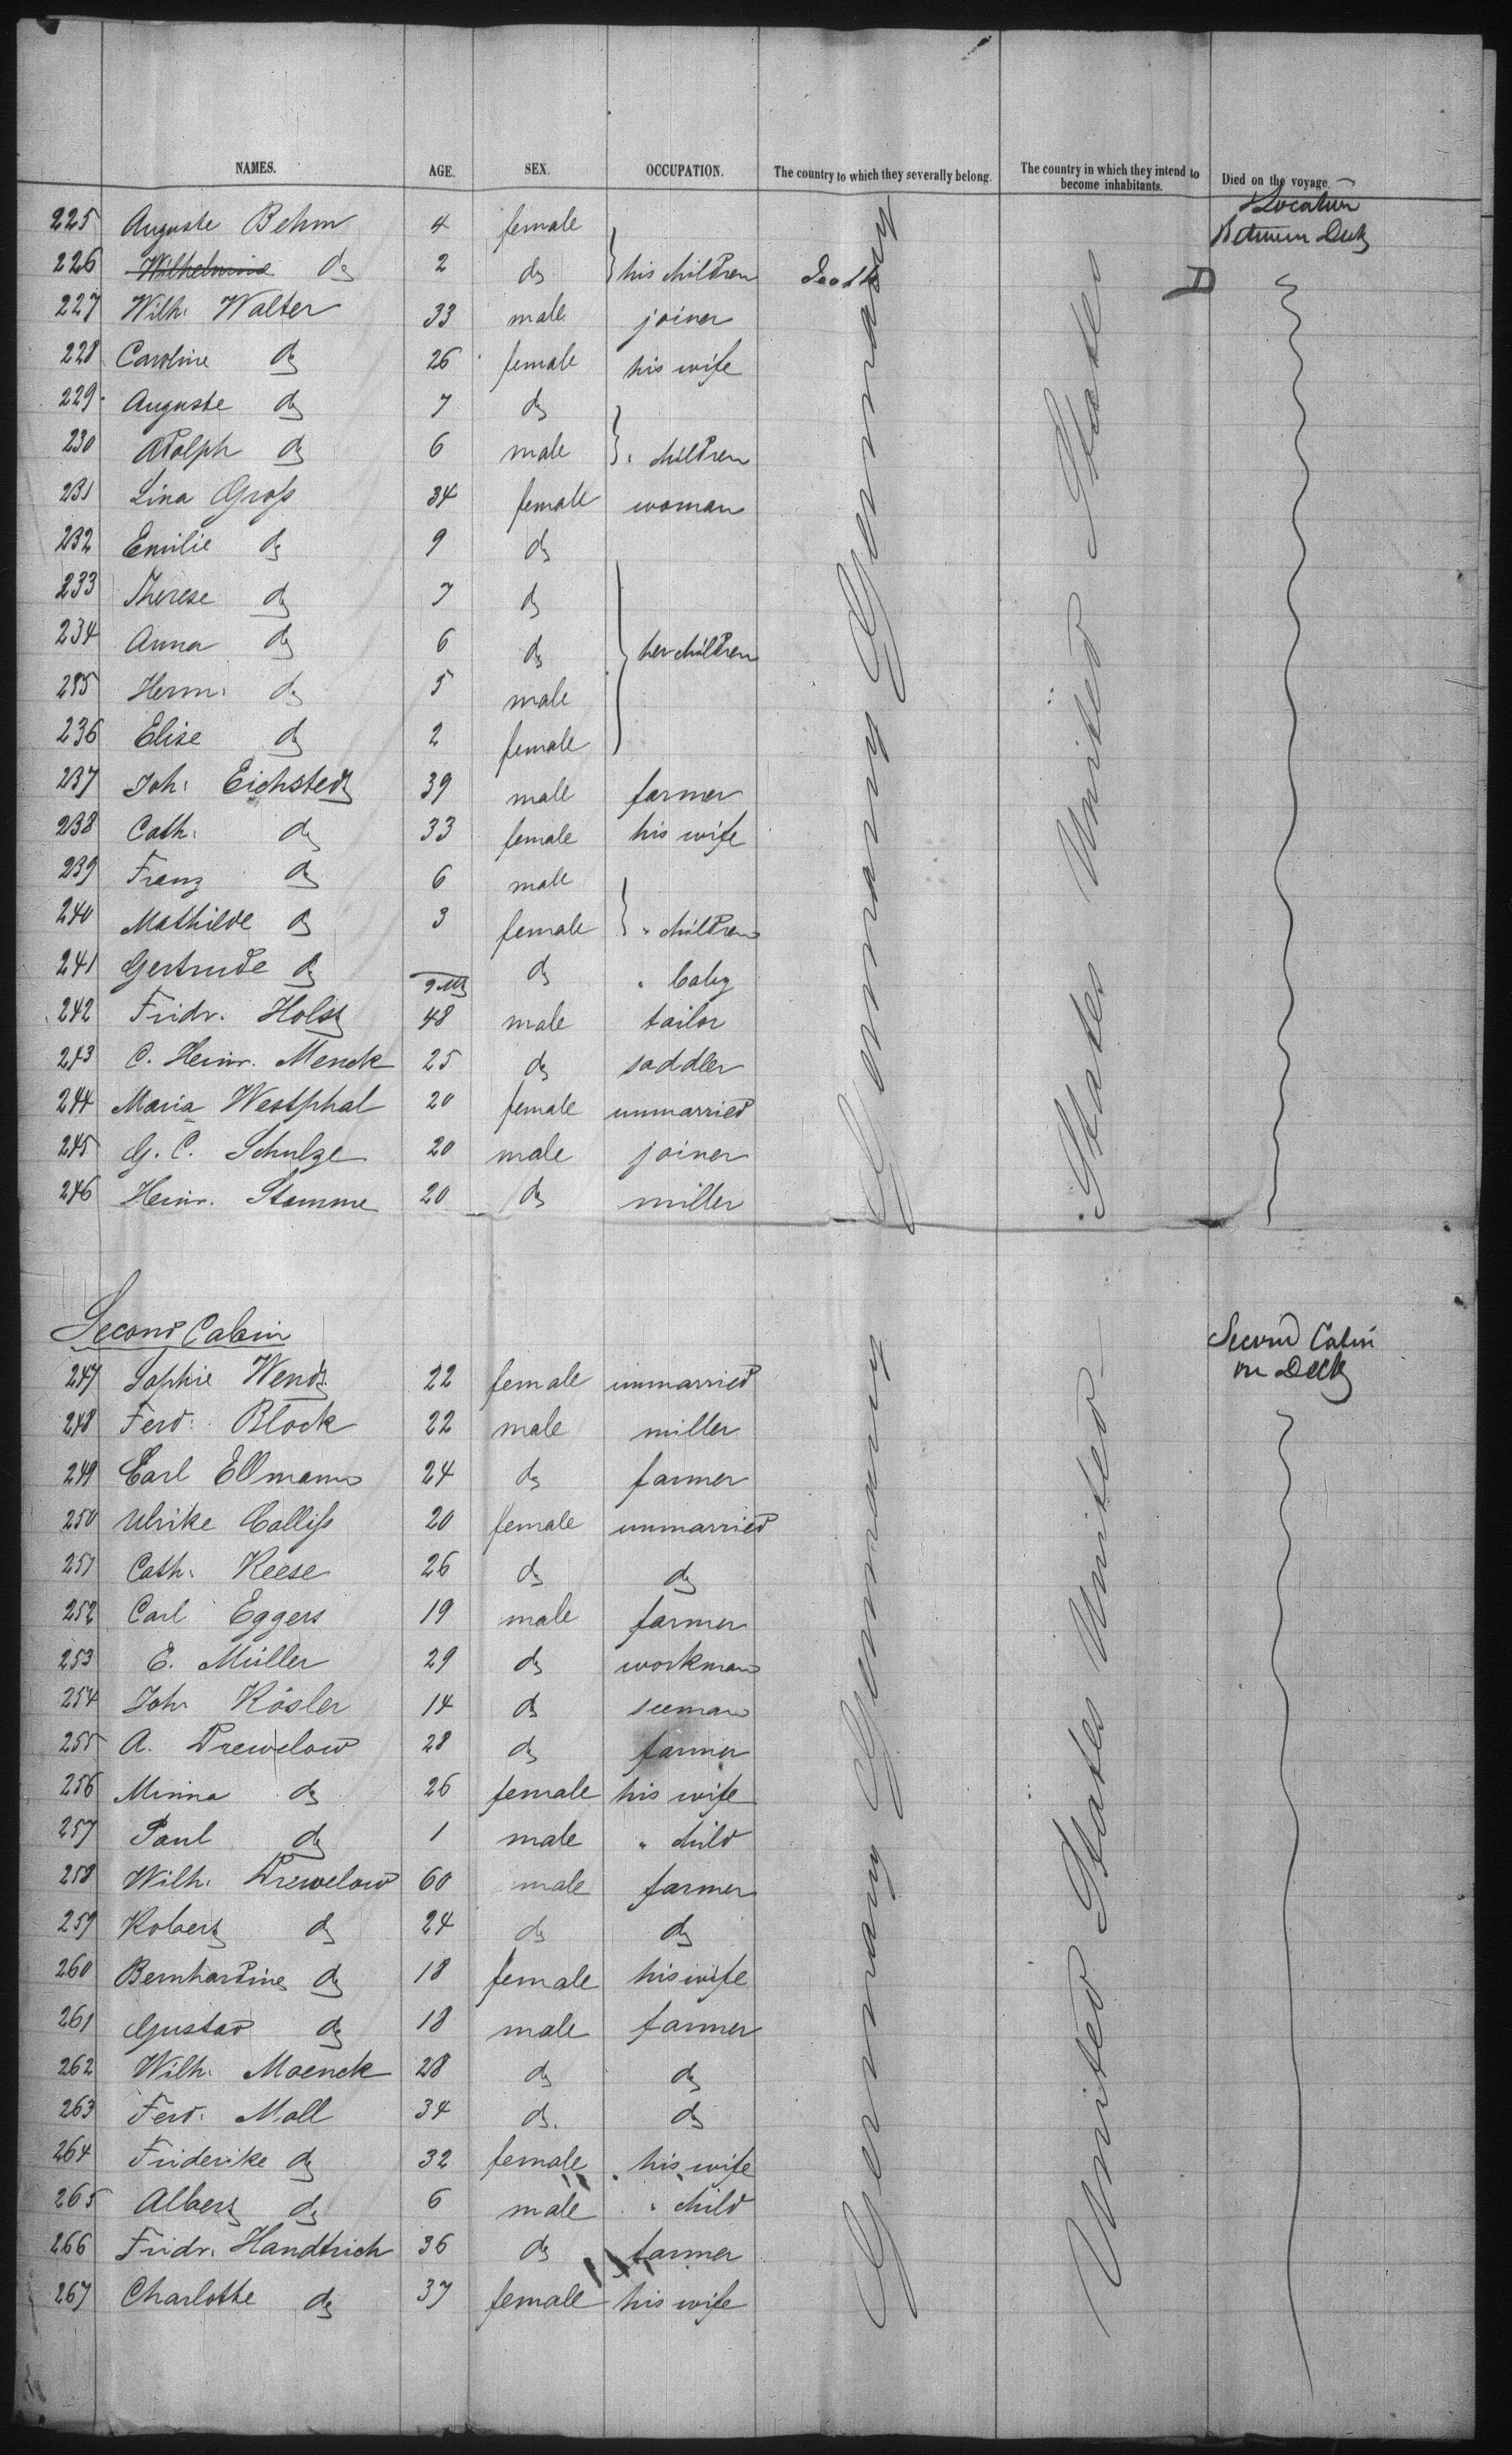 NAMES. AGE. SEX. OCCUPATION. The country to which they severally belong. The country in which they intend to become inhabitants. Died on the voyage.
Location
Between Deck
225 Auguste Behm 4 female
226 Wilhelmine do 2 do his children death D
227 Wilh. Walter 33 male joiner
228 Caroline do 26 female his wife
229 Auguste do 7 do
230 Adolph do 6 male " children
231 Lina Groß 34 female woman
232 Emilie do 9 do
233 Therese do 7 do
234 Anna do 6 do her children
235 Herm. do 5 male
236 Elise do 2 female
237 Joh. Eichstedt 39 male farmer
238 Cath. do 33 female his wife
239 Franz do 6 male
240 Mathilde do 3 female " children
241 Gertrude do 9 M do " baby
242 Fridr. Holst 48 male tailor
243 C. Heinr. Menck 25 do saddler
244 Maria Westphal 20 female unmarried
245 G. C. Schulze 20 male joiner
246 Heinr. Stamme 20 do miller
Germany Germany
States United States
Second Cabin
Second Cabin
on Deck
247 Sophie Wendt 22 female unmarried
248 Ferd. Block 22 male miller
249 Carl Ellmann 24 do farmer
250 Ulrike Calliß 20 female unmarried
251 Cath. Reese 26 do do
252 Carl Eggers 19 male farmer
253 E. Müller 29 do workman
254 Joh. Rösler 14 do seeman
255 A. Drewelow 28 do farmer
256 Minna do 26 female his wife
257 Paul do 1 male " child
258 Wilh. Drewelow 60 male farmer
259 Robert do 24 do do
260 Bernhardine do 18 female his wife
261 Gustav do 18 male farmer
262 Wilh. Maenck 28 do do
263 Ferd. Moll 34 do. do
264 Friderike do 32 female his wife
265 Albert do 6 male " child
266 Fridr. Handtrich 36 do farmer
267 Charlotte do 37 female his wife
Germany Germany
United States United